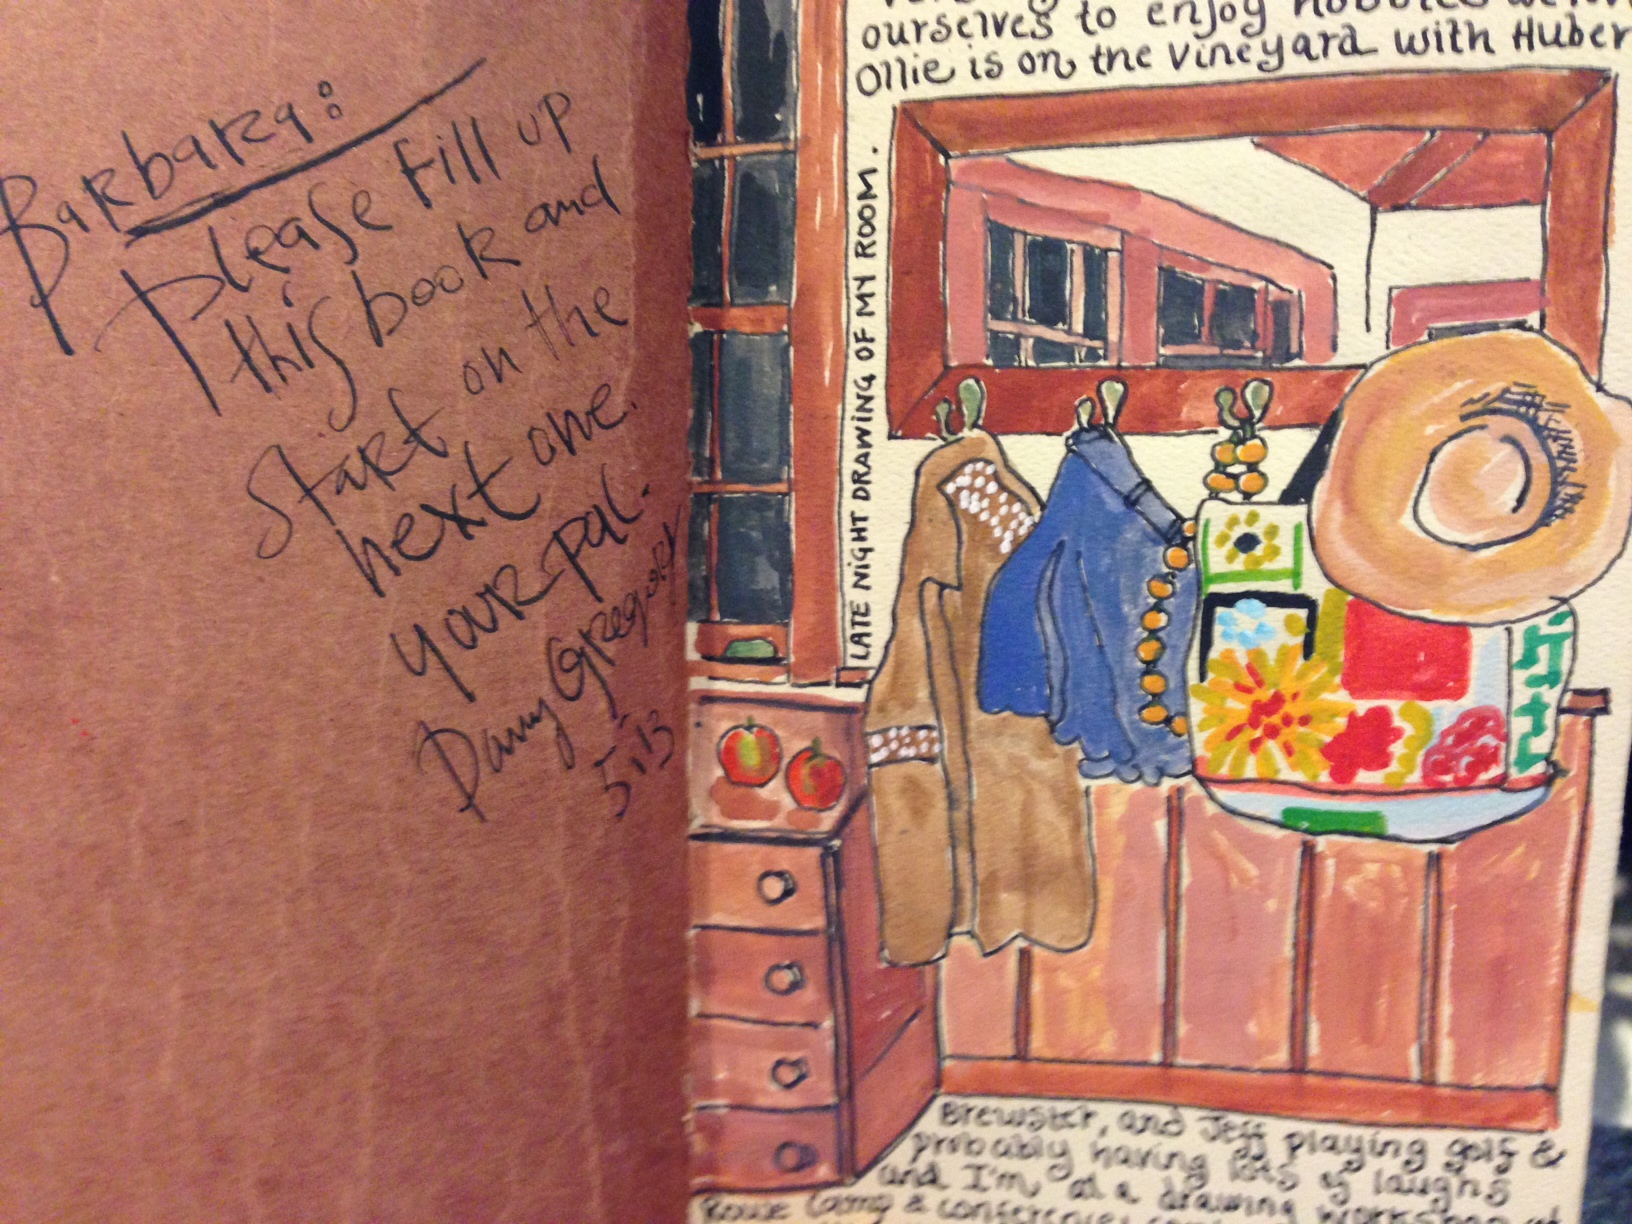 Barbara:
please fill up
this book and
start on the
next one.
your pal.
Danny Gregory
5.13
ourselves to enjoy hobbies
Ollie is on the Vineyard with Huber
LATE NIGHT DRAWING OF MY ROOM.
Brewster, and Jeff playing golf &
probably having lots of laughs
and I'm at a drawing workshop at
Rowe Camp & conference